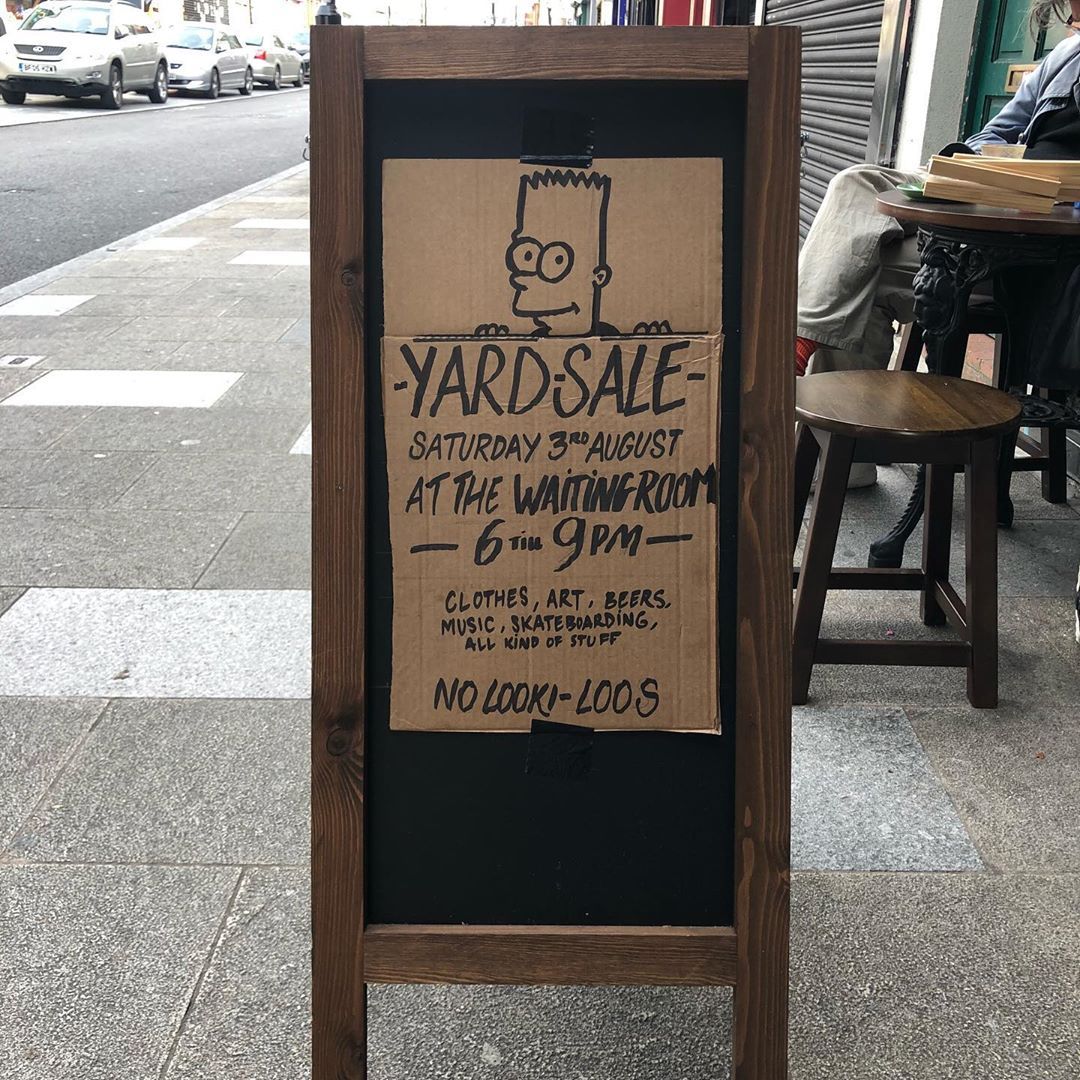 -YARD-SALE-
SATURDAY 3RD AUGUST
AT THE WAITING ROOM
— 6 TILL 9PM —
CLOTHES, ART, BEERS,
MUSIC, SKATEBOARDING,
ALL KIND OF STUFF
NO LOOKI-LOOS